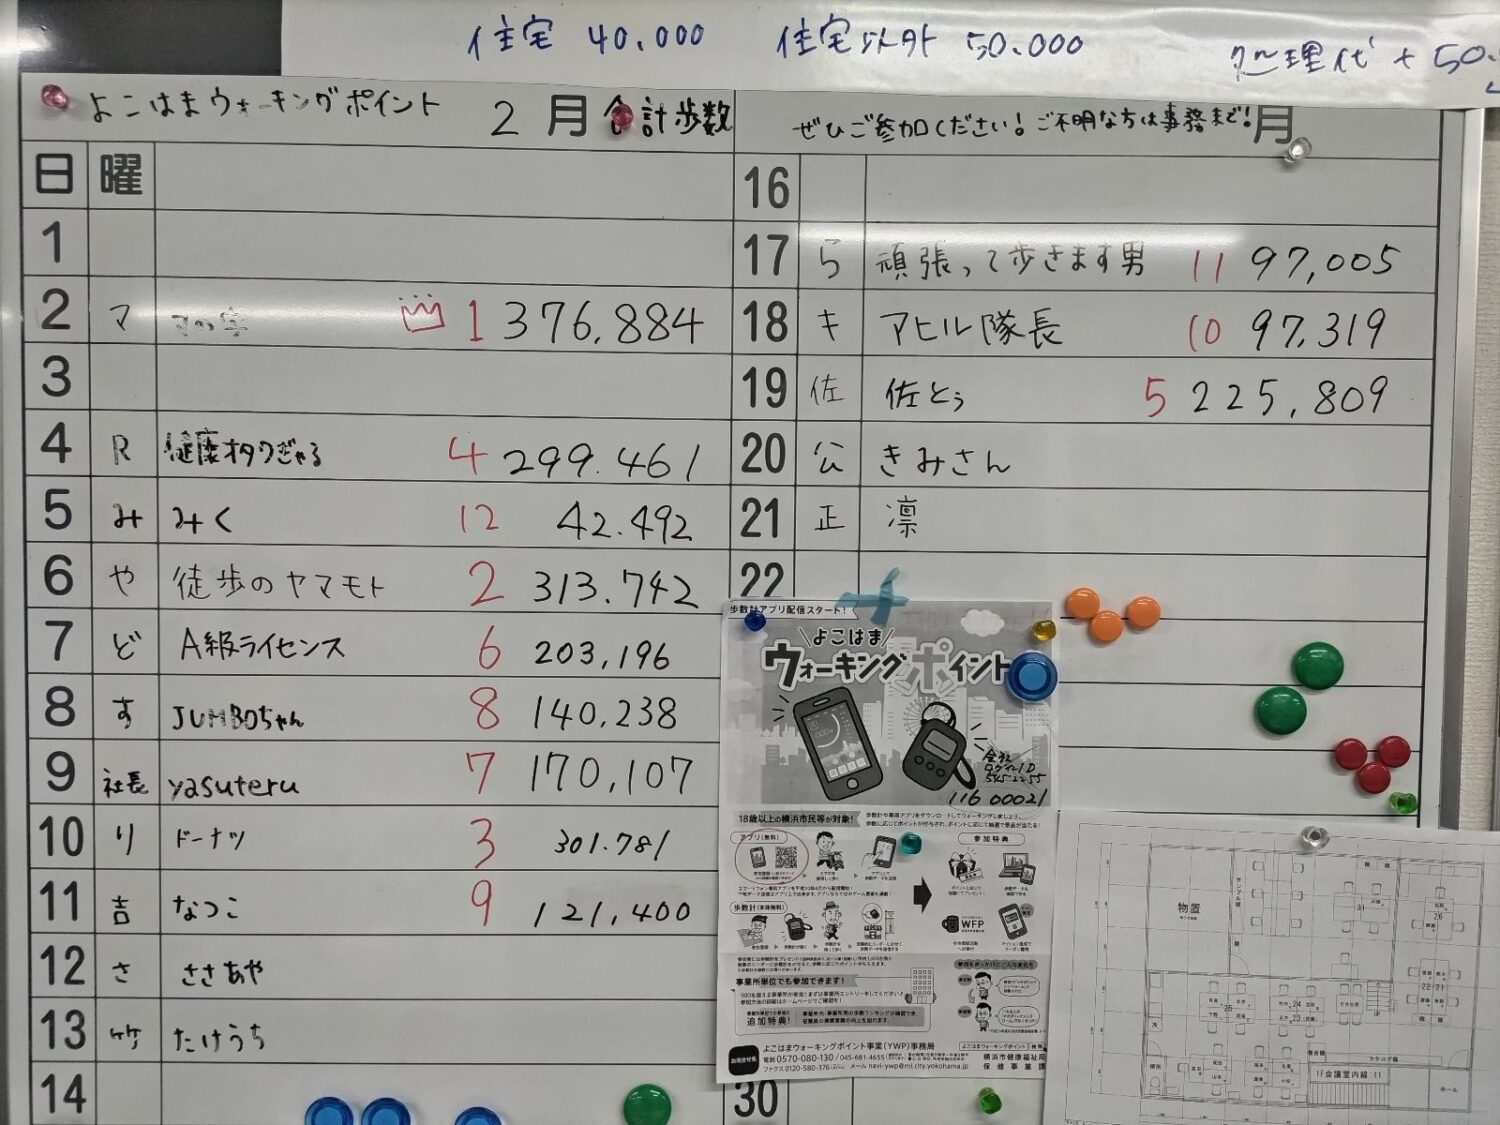 住宅 40,000 住宅以外 50.000 処理代 + 50.
よこはまウォーキングポイント 2 月 合計歩数
ぜひご参加ください! ご不明な方は事務まで! 月
日 曜
1
2 マ 1 376,884
3
4 R 健康オタクぎゃる 4 299.461
5 み みく 12 42.492
6 や 徒歩のヤマモト 2 313.742
7 ど A級ライセンス 6 203,196
8 す JUMBOちゃん 8 140,238
9 社長 yasuteru 7 170,107
10 り ドーナツ 3 301.781
11 吉 なつこ 9 121,400
12 さ ささあや
13 竹 たけうち
14
16
17 ら 頑張って歩きます男 11 97,005
18 キ アヒル隊長 10 97,319
19 佐 佐とぅ 5 225,809
20 公 きみさん
21 正 凛
22
30
歩数計アプリ配信スタート!
よこはま
ウォーキングポイント
会社
ログインID
5452255
116 00021
18歳以上の横浜市民等が対象!
アプリ(無料)
参加特典
歩数計(本体無料)
WFP
事業所単位でも参加できます!
追加特典!
よこはまウォーキングポイント事業(YWP)事務局
電話 0570-080-130 / 045-681-4655
ファクス 0120-580-376
メール navi-ywp@ml.city.yokohama.jp
よこはまウォーキングポイント 検索
横浜市健康福祉局
保健事業課
物置
サンプル棚
31
26
25
24
23
22-21
UP
便所
1F会議室内線:11
ホール